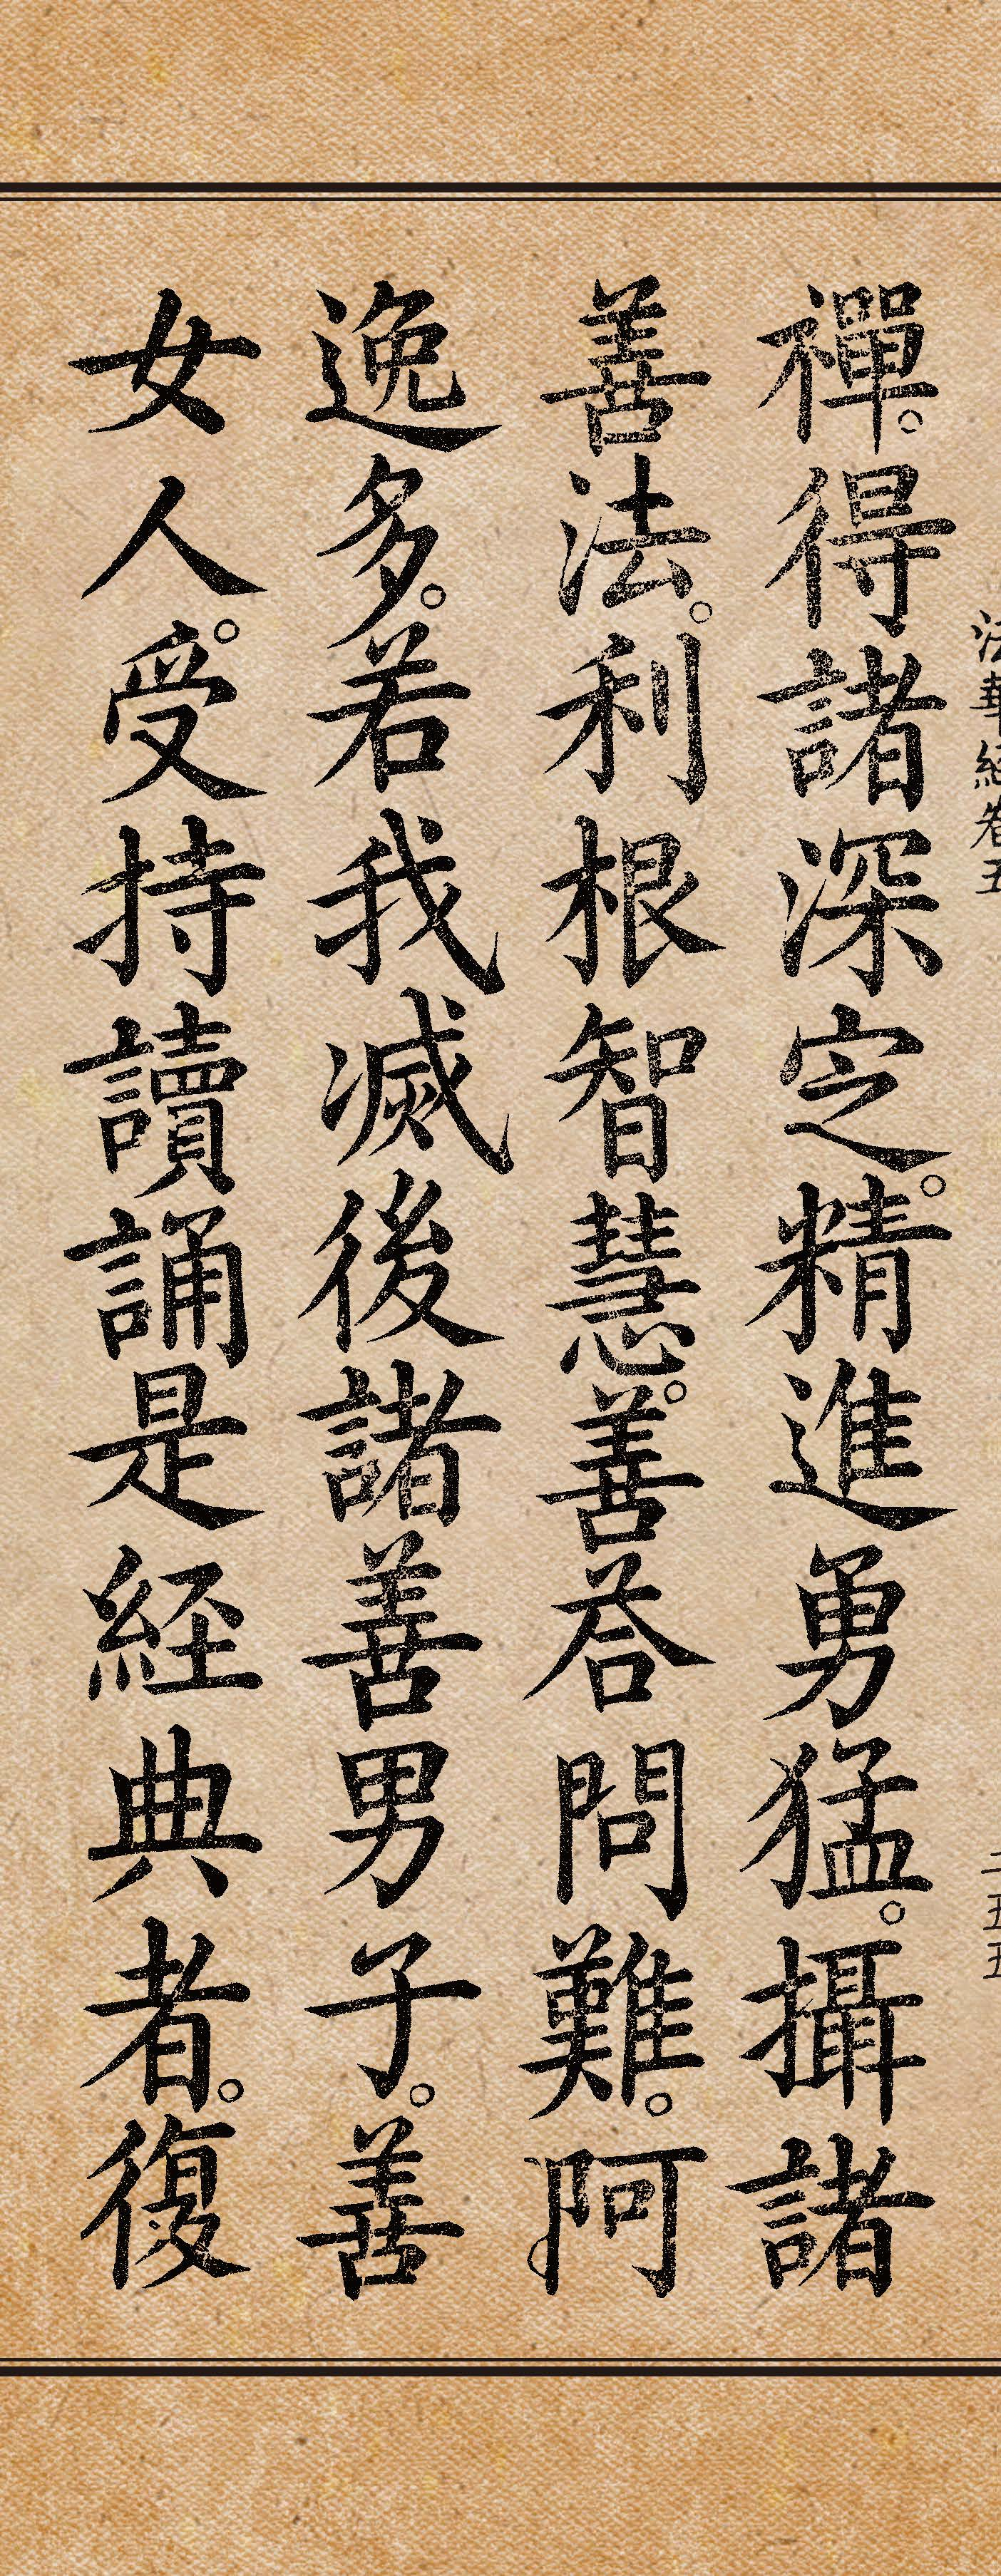 法華經卷五
二五五
禪。得諸深定。精進勇猛。攝諸
善法。利根智慧。善荅問難。阿
逸多。若我滅後諸善男子。善
女人。受持讀誦是経典者。復